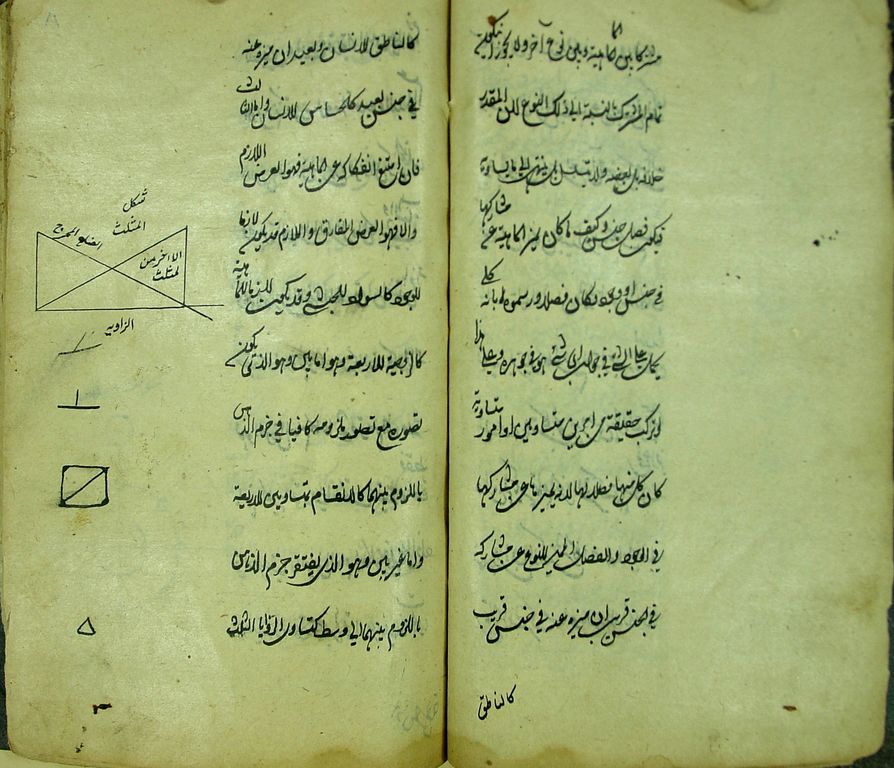 مشتركا بين الماهية وبين نوع آخر ولا يجوز ان يكون
تمام المشترك بالنسبة الى ذلك النوع لان المقدر
خلافه بل بعضه ولا يتسلسل بل ينتهي الى ما يساويه
فيكون فصل جنس وكيف ما كان يميز الماهية عن مشاركيها
في جنس او وجود فكان فصلا ورسموه بانه كلي
يحمل على الشيء في جواب اي شيء هو في جوهره وعلى هذا
لو تركبت حقيقة من امرين متساويين او امور متساوية
كان كل منها فصلا لها لانه يميزها عن مشاركها
في الوجود والفصل المميز للنوع عن مشاركه
في الجنس قريب ان ميزه عنه في جنس قريب
كالناطق
كالناطق للانسان وبعيد ان ميزه عنه
في جنس بعيد كالحساس للانسان واما الثالث
فان امتنع انفكاكه عن الماهية فهو العرض اللازم
والا فهو العرض المفارق واللازم قد يكون لازما
للوجود كالسواد للحبشي وقد يكون لازما للماهية
كالزوجية للاربعة وهو اما بين وهو الذي يكون
تصوره مع تصور ملزومه كافيا في جزم الذهن
باللزوم بينهما كالانقسام بمتساويين للاربعة
واما غير بين وهو الذي يفتقر جزم الذهن
باللزوم بينهما الى وسط كتساوي الزوايا الثلث
شكل
المثلث
الضلع المخرج
الاخر من
المثلث
الزاوية